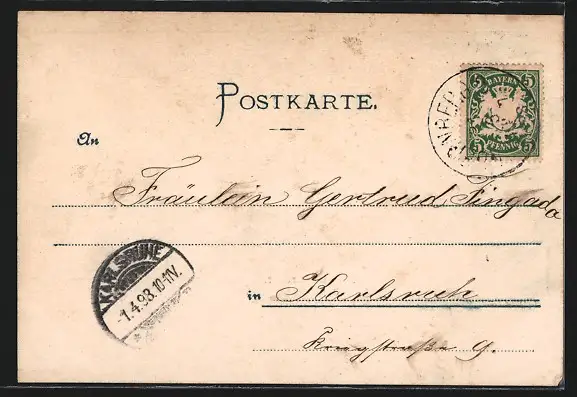 5 BAYERN 5
5 PFENNIG 5
POSTKARTE.
An
Fräulein Gertrud Fingado
KARLSRUHE
-1.4.98.10-11V.
in Karlsruhe
Kriegstraße 9.